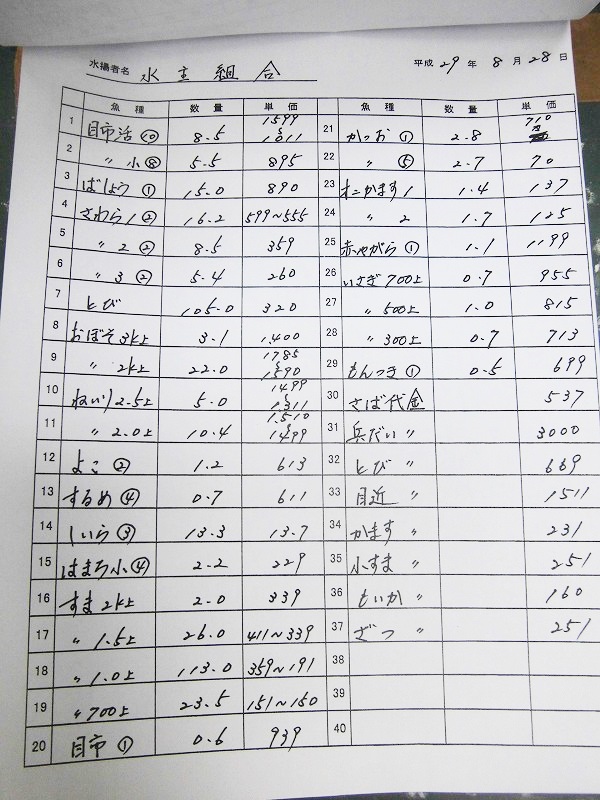 水揚者名 水主組合
平成 29 年 8 月 28 日
魚種 数量 単価
1 目市活⑩ 8.5 1599 〜 1011
2 〃 小⑧ 5.5 895
3 ばしょう① 15.0 890
4 さわら1② 16.2 599〜555
5 〃 2② 8.5 359
6 〃 3② 5.4 260
7 とび 105.0 320
8 おぼそ3k上 3.1 1.400
9 〃 2k上 22.0 1785 〜 1590
10 ねいり2.5上 5.0 1499 〜 1311
11 〃 2.0上 10.4 1.510 〜 1499
12 よこ② 1.2 613
13 するめ④ 0.7 611
14 しいら③ 13.3 13.7
15 はまち小④ 2.2 229
16 すま2k上 2.0 339
17 〃 1.5上 26.0 411〜339
18 〃 1.0上 113.0 359〜191
19 〃 700上 23.5 151〜150
20 目市① 0.6 939
魚種 数量 単価
21 かつお① 2.8 710
22 〃 ⑤ 2.7 70
23 オニかます1 1.4 137
24 〃 2 1.7 125
25 赤やがら① 1.1 1199
26 いさぎ700上 0.7 955
27 〃 500上 1.0 815
28 〃 300上 0.7 713
29 もんつき① 0.5 699
30 さば代金 537
31 兵だい 〃 3000
32 とび 〃 669
33 目近 〃 1511
34 かます 〃 231
35 小すま 〃 251
36 もいか 〃 160
37 ざつ 〃 251
38
39
40